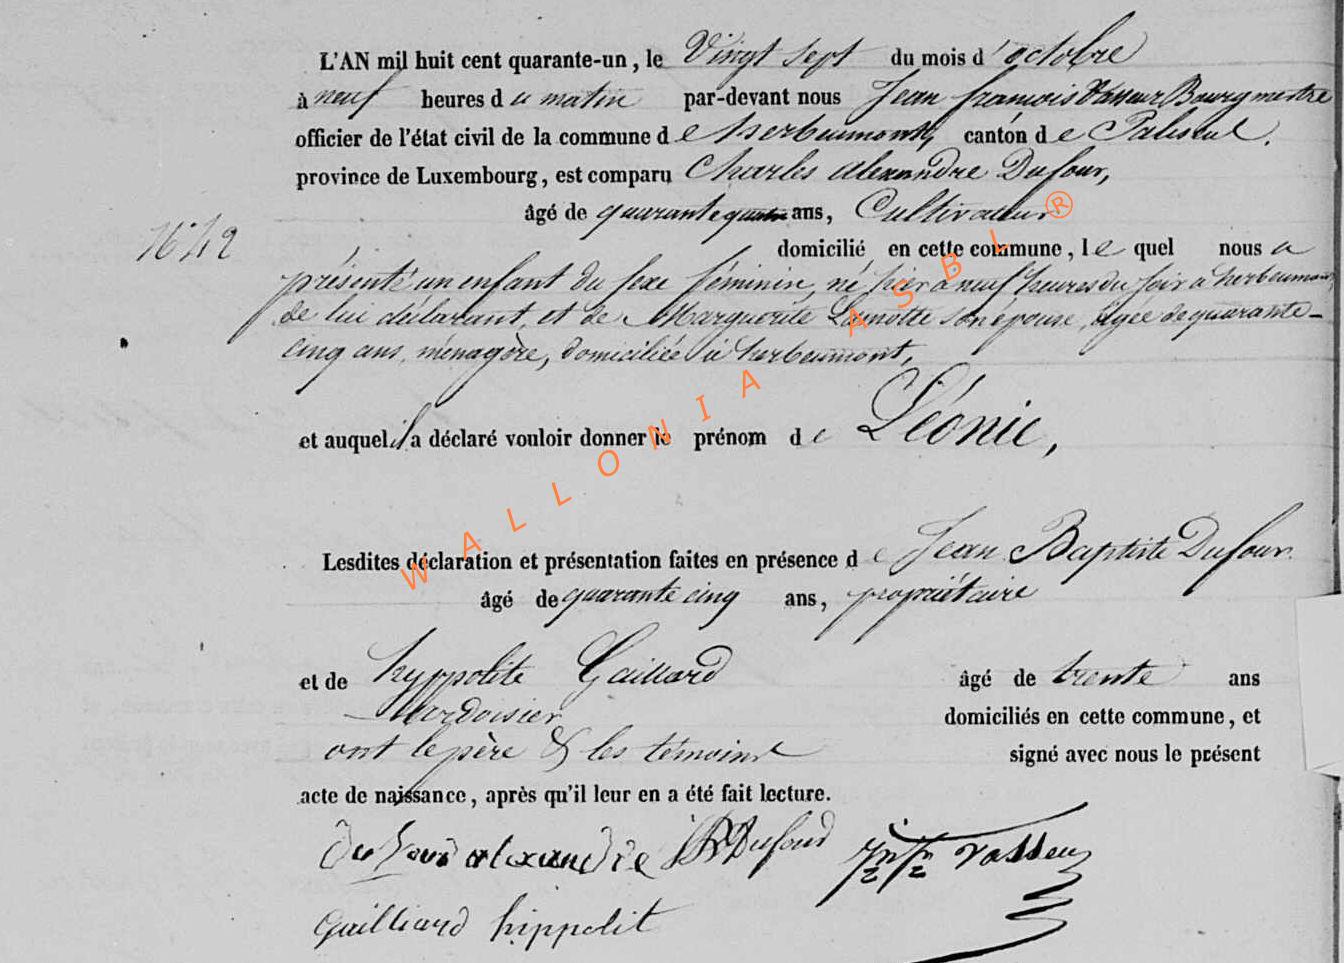 L'AN mil huit cent quarante-un, le Vingt sept du mois d'octobre
à neuf heures du matin par-devant nous Jean françois Vasseur Bourgmestre
officier de l'état civil de la commune de herbeumont, canton de Paliseul.
province de Luxembourg, est comparu Charles alexandre Dufour,
âgé de quarante quatre ans, Cultivateur
domicilié en cette commune, lequel nous a
présenté un enfant du sexe féminin, né hier à neuf heures du soir à herbeumont,
de lui déclarant, et de Marguerite Lamotte son épouse, âgée de quarante-
cinq ans, ménagère, domiciliée à herbeumont,
et auquel il a déclaré vouloir donner le prénom de Léonie,
Lesdites déclaration et présentation faites en présence de Jean Baptiste Dufour
âgé de quarante cinq ans, propriétaire
et de hyppolite Gaillard âgé de trente ans
Ardoisier domiciliés en cette commune, et
ont le père & les témoins signé avec nous le présent
acte de naissance, après qu'il leur en a été fait lecture.
alexandre Dufour Vasseur
Gailliard hippolit
WALLONIA ASBL ®